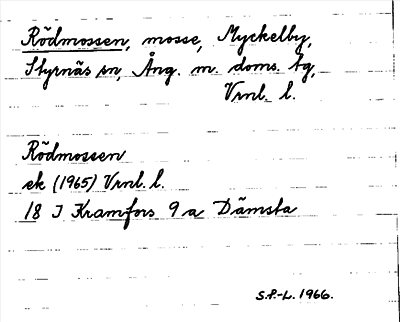 Rödmossen, mosse, Myckelby,
Styrnäs sn, Ång. m. doms. tg,
Vrnl. l.
Rödmossen
ek (1965) Vrnl. l.
18 J Kramfors 9 a Dämsta
S.P.-L. 1966.